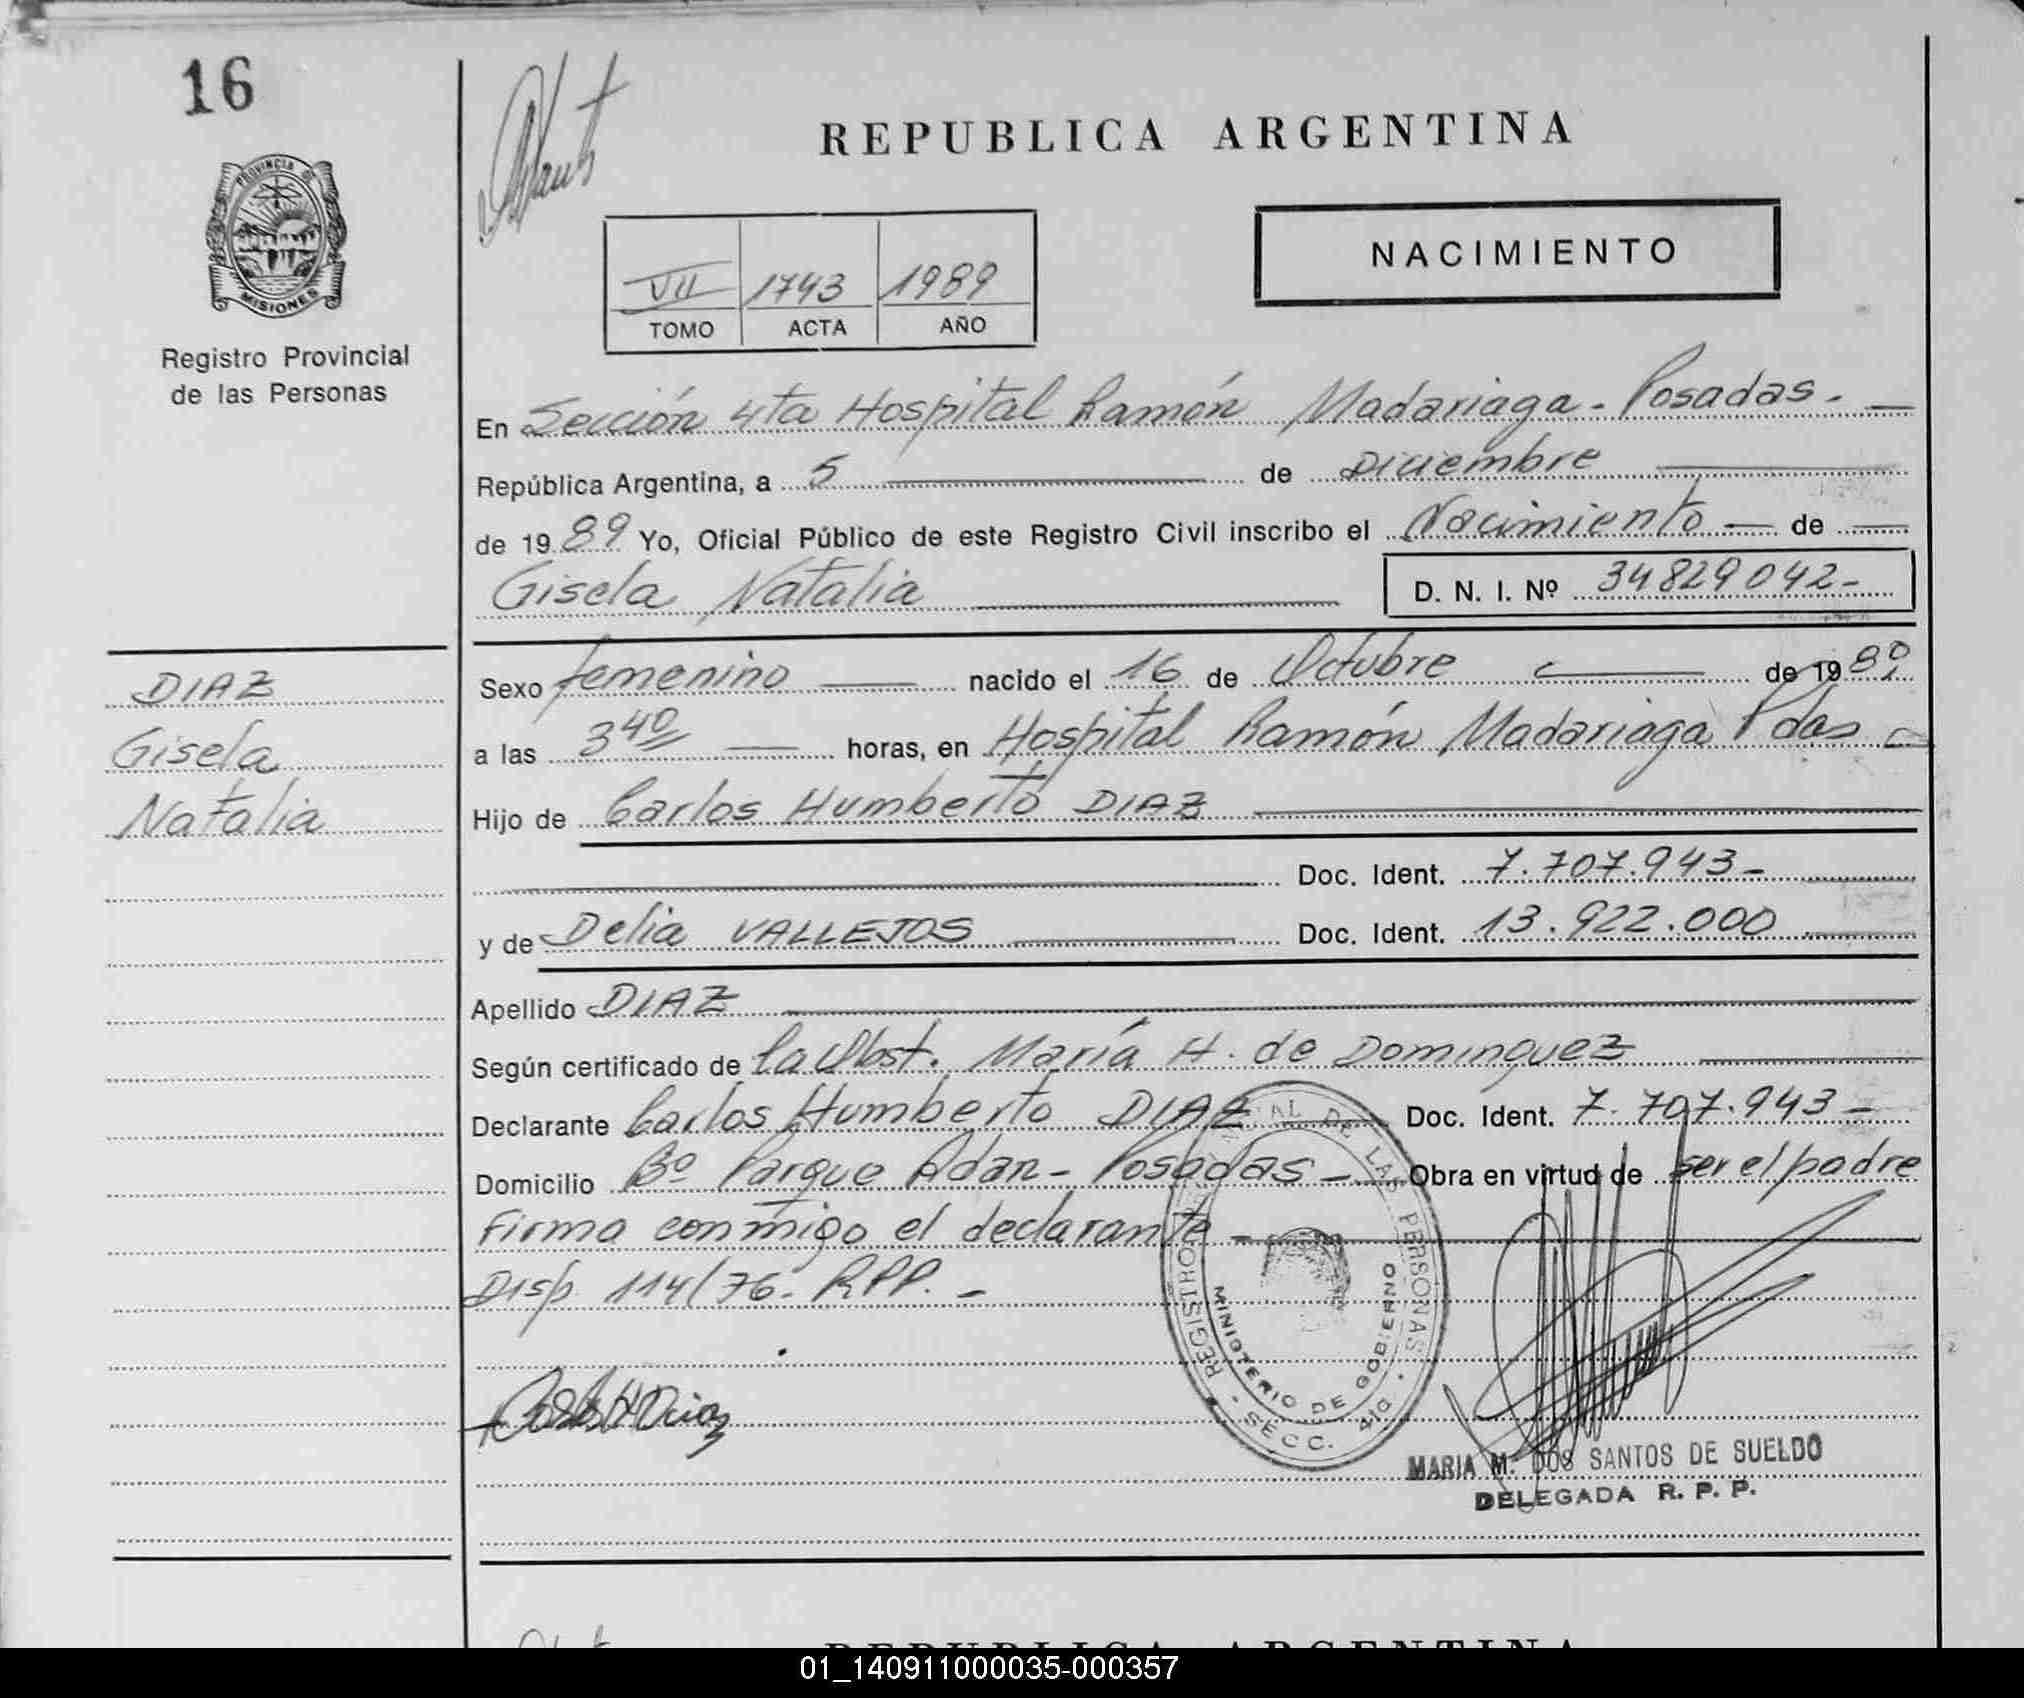 16
REPUBLICA ARGENTINA
PROVINCIA DE
MISIONES
Registro Provincial
de las Personas
NACIMIENTO
VII 1743 1989
TOMO ACTA AÑO
En Sección 4ta Hospital Ramón Madariaga - Posadas. —
República Argentina, a 5 — de Diciembre —
de 1989 Yo, Oficial Público de este Registro Civil inscribo el Nacimiento — de —
Gisela Natalia — D. N. I. Nº 34829042-
DIAZ
Gisela
Natalia
Sexo femenino — nacido el 16 de Octubre — de 1989
a las 3 40 — horas, en Hospital Ramón Madariaga Pdas —
Hijo de Carlos Humberto DIAZ —
— Doc. Ident. 7.707.943- —
y de Delia VALLEJOS — Doc. Ident. 13.922.000 —
Apellido DIAZ —
Según certificado de la Obst. María H. de Dominguez —
Declarante Carlos Humberto DIAZ — Doc. Ident. 7.707.943 -
Domicilio Bº Parque Adan - Posadas - Obra en virtud de ser el padre
Firma conmigo el declarante —
Disp. 114/76. RPP. -
REGISTRO DE LAS PERSONAS
MINISTERIO DE GOBIERNO
SECC. 4ta
Carlos H Diaz
MARIA M. DOS SANTOS DE SUELDO
DELEGADA R. P. P.
REPUBLICA ARGENTINA
01_140911000035-000357